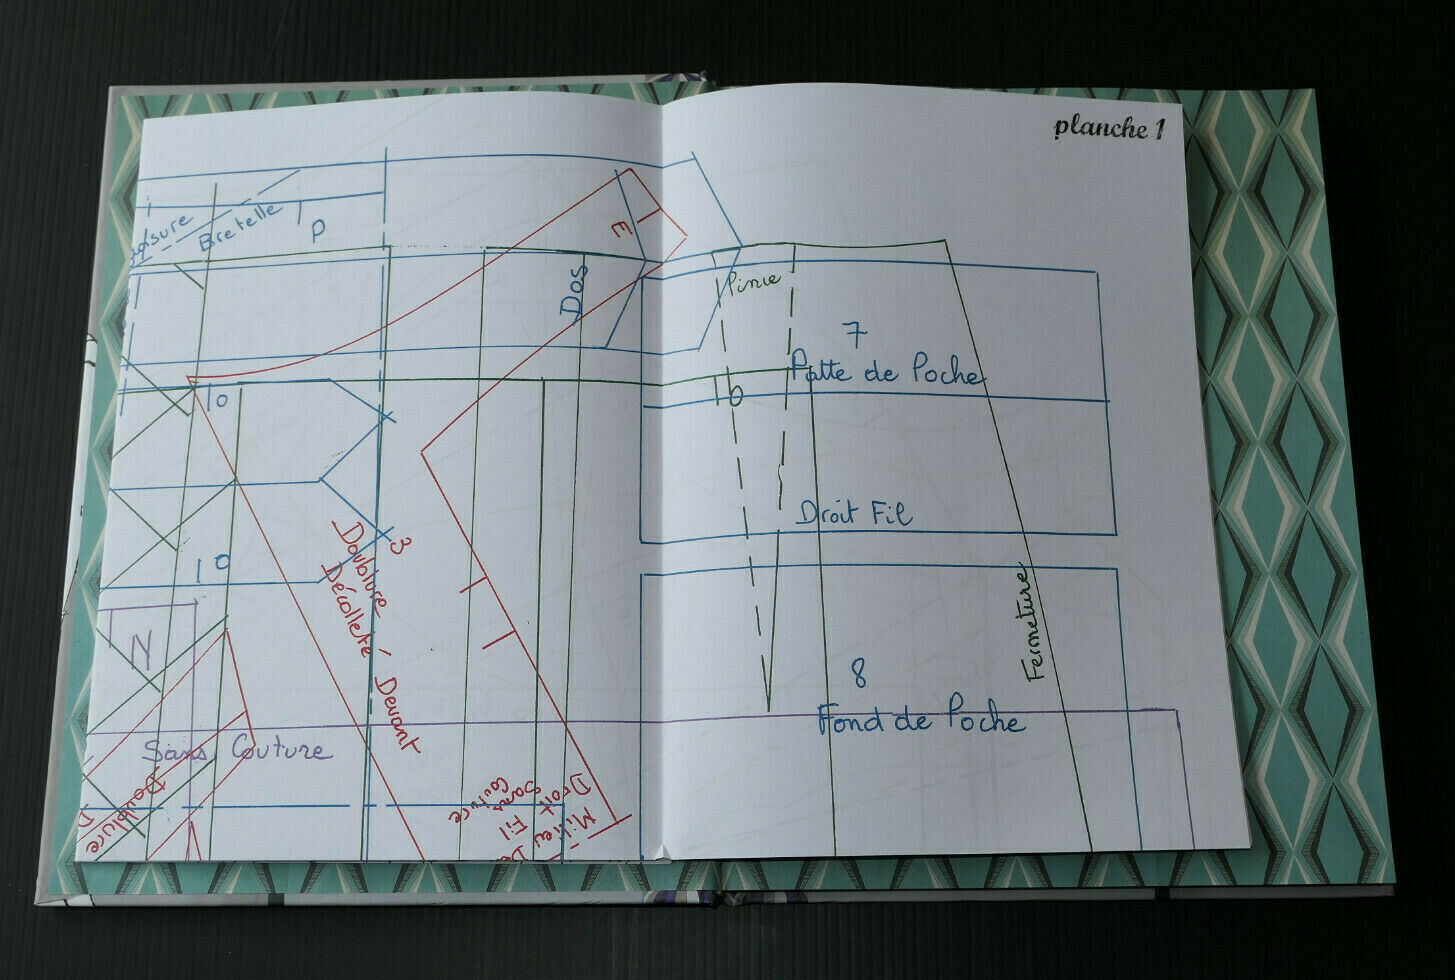 planche 1
Bretelle
P
E
Dos
Pince
7
Patte de Poche
10
10
Droit Fil
10
3
Doublure
Décolleté Devant
Fermeture
N
8
Fond de Poche
Sans Couture
Doublure
D
Droit Fil
Sans
Couture
Milieu